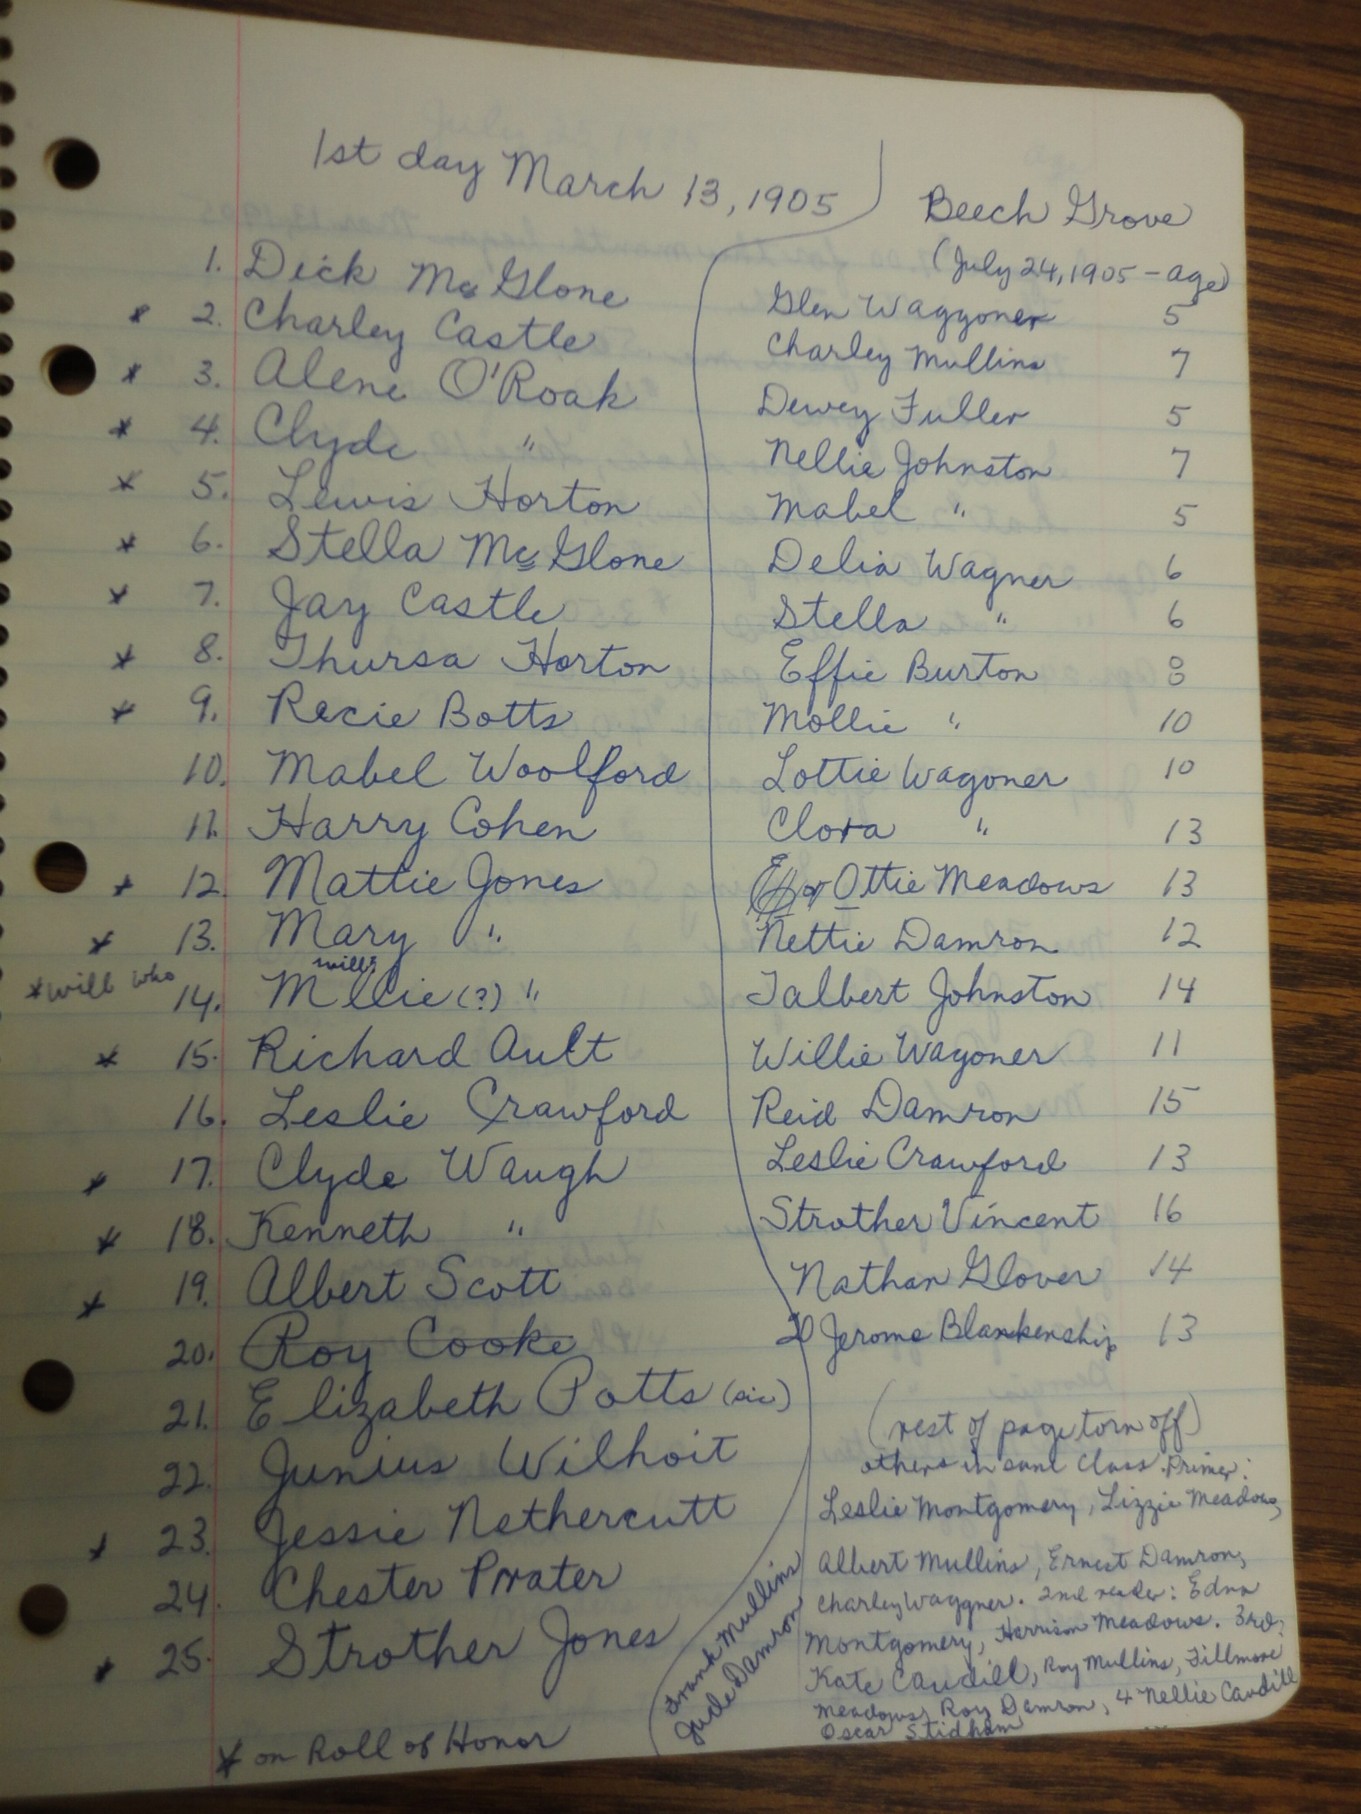 1st day March 13, 1905
1. Dick McGlone
* 2. Charley Castle
* 3. Alene O'Roak
* 4. Clyde "
* 5. Lewis Horton
* 6. Stella McGlone
* 7. Jay Castle
* 8. Thursa Horton
* 9. Racie Botts
10. Mabel Woolford
11. Harry Cohen
* 12. Mattie Jones
* 13. Mary "
*will who 14. Mllie (?) "
* 15. Richard Ault
16. Leslie Crawford
* 17. Clyde Waugh
* 18. Kenneth "
* 19. Albert Scott
20. Roy Cooke
21. Elizabeth Potts (sic)
22. Junius Wilhoit
* 23. Jessie Nethercutt
24. Chester Prater
* 25. Strother Jones
* on Roll of Honor
Beech Grove
(July 24, 1905 - age)
Glen Waggoner 5
Charley Mullins 7
Dewey Fuller 5
Nellie Johnston 7
Mabel " 5
Delia Wagner 6
Stella " 6
Effie Burton 8
Mollie " 10
Lottie Wagoner 10
Clora " 13
or Ottie Meadows 13
Nettie Damron 12
Talbert Johnston 14
Willie Wagoner 11
Reid Damron 15
Leslie Crawford 13
Strother Vincent 16
Nathan Glover 14
20 Jerome Blankenship 13
(rest of page torn off)
others in same class. Primer:
Leslie Montgomery, Lizzie Meadows,
Albert Mullins, Ernest Damron,
Charley Waggner. 2nd reader: Edna
Montgomery, Harrison Meadows. 3rd:
Kate Caudill, Roy Mullins, Fillmore
Meadows, Roy Damron, 4 Nellie Caudill
Oscar Stidham
Frank Mullins
Jude Damron